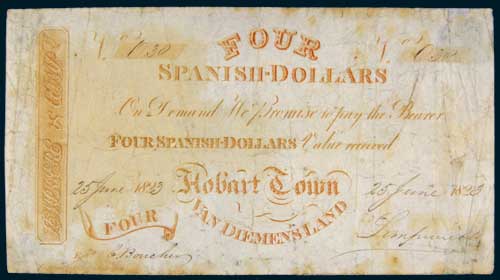 No 030 FOUR No 030
SPANISH-DOLLARS
On Demand We Promise to pay the Bearer
FOUR SPANISH-DOLLARS Value received
25 June 1823 Hobart Town 25 June 1823
VAN DIEMEN'S LAND
FOUR
Boucher